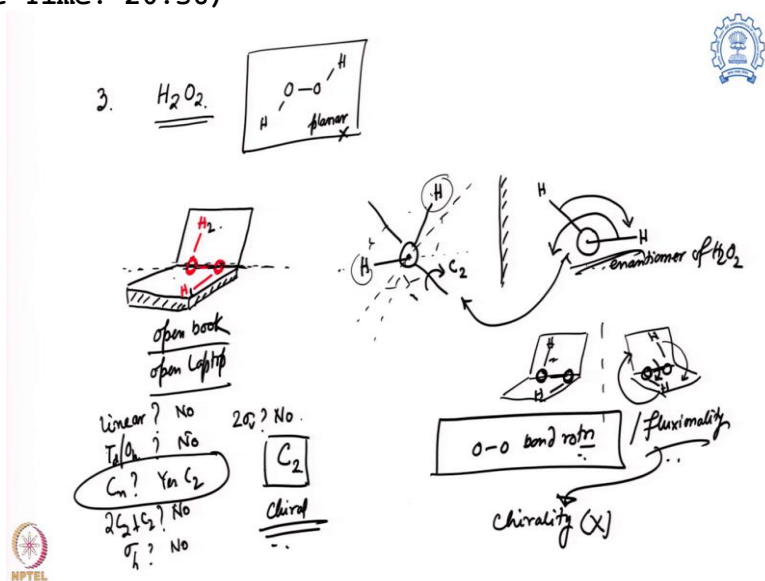 Time: 20:30)
3. H2O2.
H
O-O
H
planar
X
H2
O O
H
open book
open Laptop
linear? No
Td/Oh? No
Cn? Yes C2
2C2⊥C2? No
σh? No
2σv? No.
C2
Chiral
H
H
C2
H
H
enantiomer of H2O2
H
H
H
H
O-O bond rotn / fluxionality
Chirality (X)
NPTEL